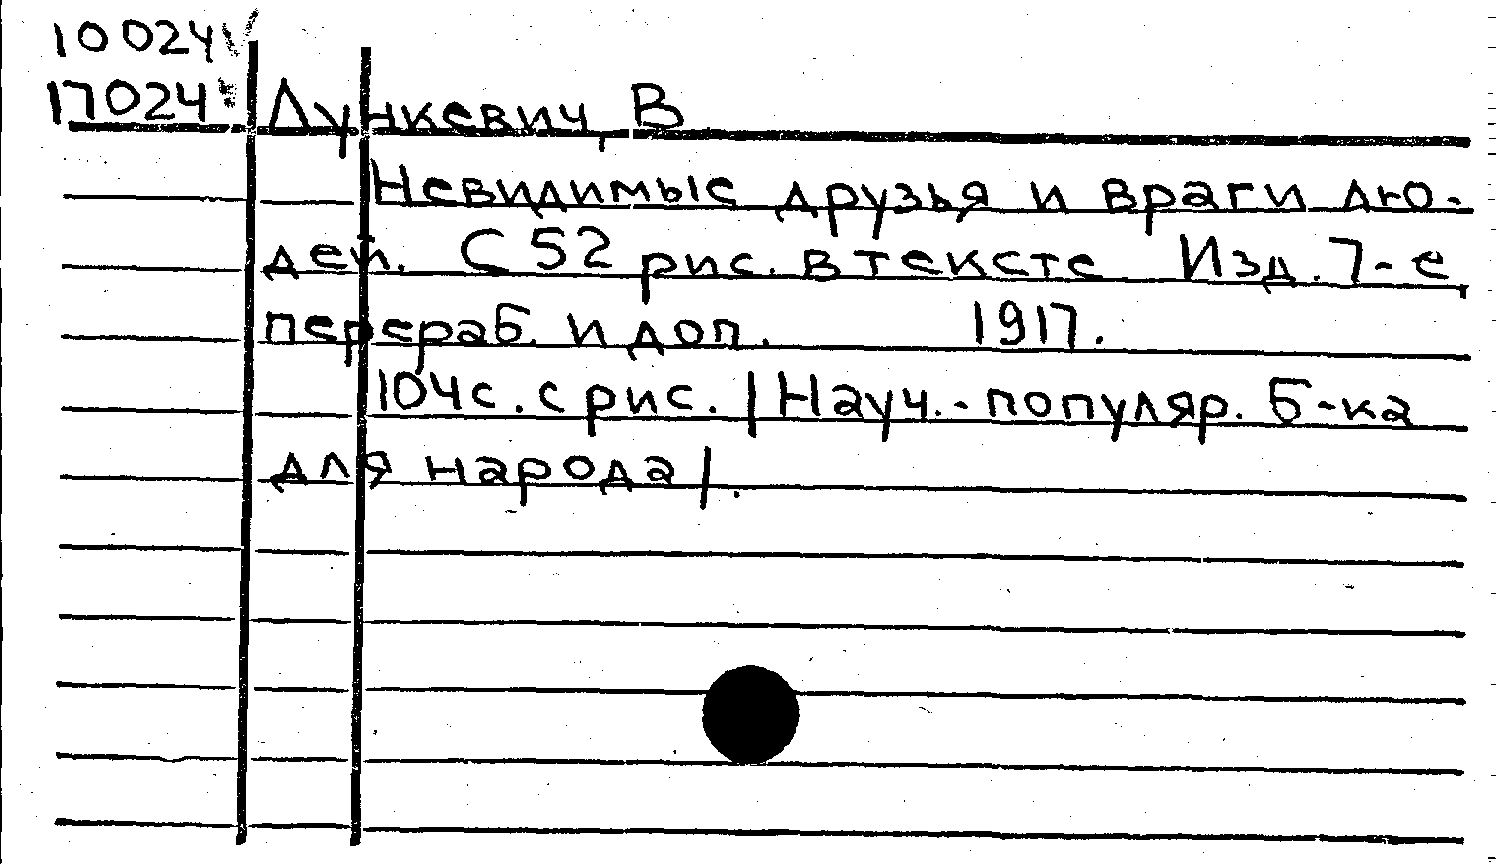 10024
17024 Лункевич, В
Невидимые друзья и враги лю-
дей. С 52 рис. в тексте Изд. 7-е,
перераб. и доп. 1917.
104с. с рис. | Науч.-популяр. б-ка
для народа|.